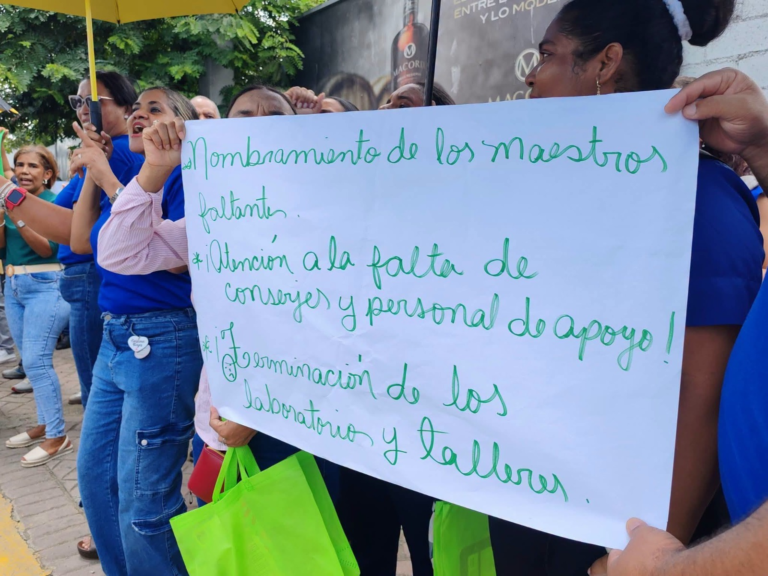 ENTRE L
Y LO MODE
MACORI
MACOR
Nombramiento de los maestros
faltantes.
*¡Atención a la falta de
conserjes y personal de apoyo!
*¡Terminación de los
laboratorios y talleres.